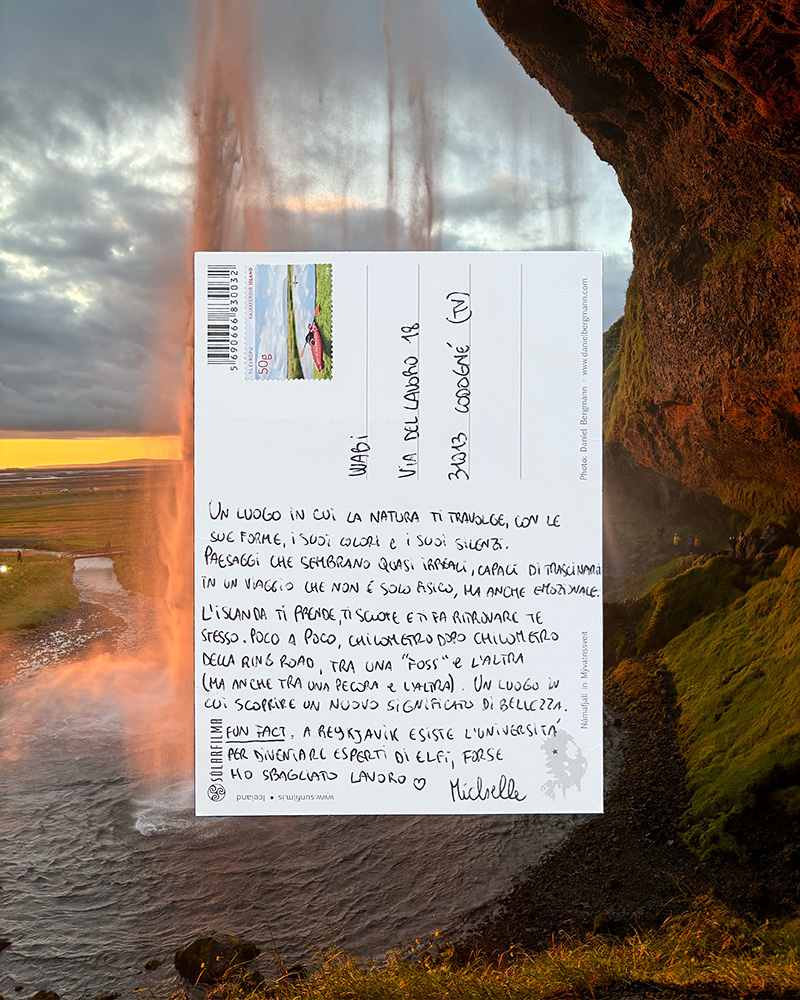 5 690666 830032
TIL EVRÓPU
50g
KAJAKFERÐIR ÍSLAND
WABI
VIA DEL LAVORO 18
31013 CODOGNÉ (TV)
Photo: Daniel Bergmann - www.danielbergmann.com
UN LUOGO IN CUI LA NATURA TI TRAVOLGE, CON LE
SUE FORME, I SUOI COLORI E I SUOI SILENZI.
PAESAGGI CHE SEMBRANO QUASI IRREALI, CAPACI DI TRASCINARTI
IN UN VIAGGIO CHE NON É SOLO FISICO, MA ANCHE EMOZIONALE.
L'ISLANDA TI PRENDE, TI SCUOTE E TI FA RITROVARE TE
STESSO. POCO A POCO, CHILOMETRO DOPO CHILOMETRO
DELLA RING ROAD, TRA UNA "FOSS" E L'ALTRA
(MA ANCHE TRA UNA PECORA E L'ALTRA). UN LUOGO IN
CUI SCOPRIRE UN NUOVO SIGNIFICATO DI BELLEZZA.
FUN FACT, A REYKJAVIK ESISTE L'UNIVERSITÁ
PER DIVENTARE ESPERTI DI ELFI, FORSE
HO SBAGLIATO LAVORO ♡ Michelle
Námafjall in Mývatnssveit
SÓLARFILMA
www.sunfilm.is • Iceland